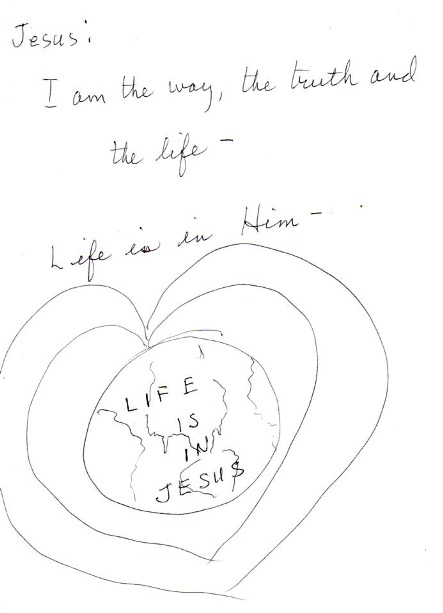 Jesus:
I am the way, the truth and
the life -
Life is in Him -
LIFE
IS
IN
JESUS